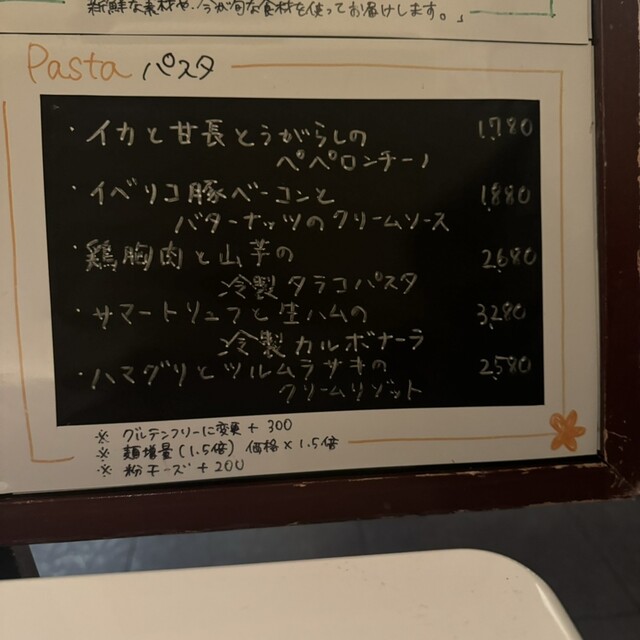 新鮮な素材や、今が旬な食材を使ってお届けします。」
Pasta パスタ
・イカと甘長とうがらしの 1,780
ペペロンチーノ
・イベリコ豚ベーコンと 1,880
バターナッツのクリームソース
・鶏胸肉と山芋の 2,680
冷製タラコパスタ
・サマートリュフと生ハムの 3,280
冷製カルボナーラ
・ハマグリとツルムラサキの 2,580
クリームリゾット
※ グルテンフリーに変更 + 300
※ 麺増量 (1.5倍) 価格 × 1.5倍
※ 粉チーズ + 200